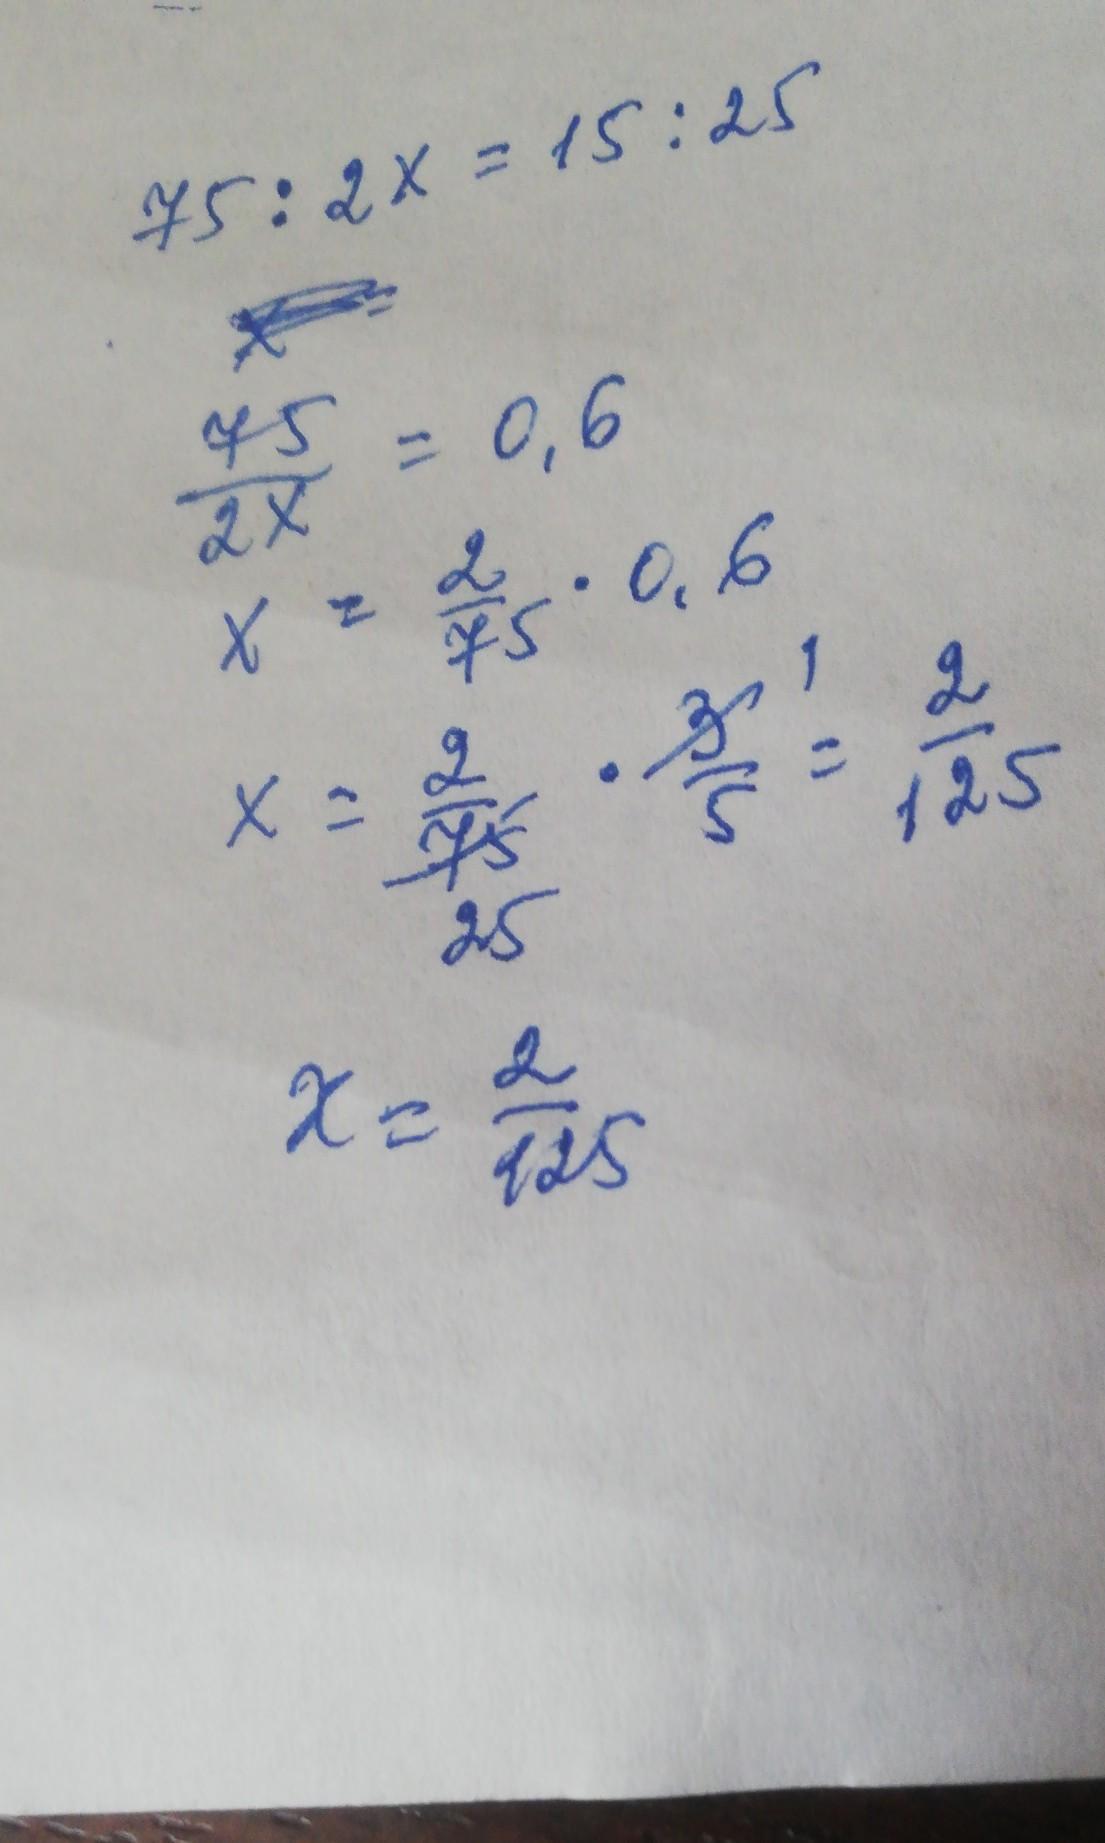 75 : 2x = 15 : 25
75/2x = 0,6
x = 2/75 · 0,6
x = 2/75 25 · 3/5 1 = 2/125
x = 2/125